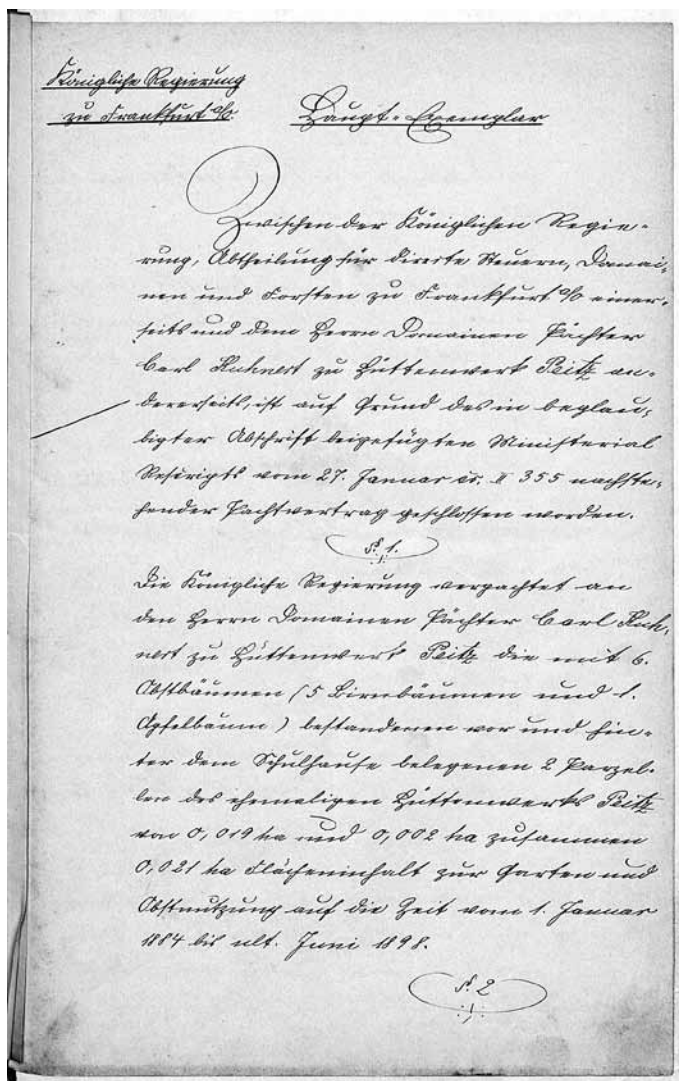 Königliche Regierung
zu Frankfurt a/o.
Haupt-Exemplar
Zwischen der Königlichen Regie-
rung, Abtheilung für directe Steuern, Domai-
nen und Forsten zu Frankfurt a/o einer-
seits und dem Herrn Domainen Pächter
Carl Kuhnert zu Hüttenwerk Peitz an-
dererseits, ist auf Grund des in beglau-
bigter Abschrift beigefügten Ministerial
Rescripts vom 27. Januar cr. II 355 nachste-
hender Pachtvertrag geschlossen worden.
§. 1.
Die Königliche Regierung verpachtet an
den Herrn Domainen Pächter Carl Kuh-
nert zu Hüttenwerk Peitz die mit 6.
Obstbäumen (5 Birnbäumen und 1.
Apfelbaum) bestandenen vor und hin-
ter dem Schulhause belegenen 2 Parzel-
len des ehemaligen Hüttenwerks Peitz
von 0,019 ha und 0,002 ha zusammen
0,021 ha Flächeninhalt zur Garten und
Obstnutzung auf die Zeit vom 1. Januar
1884 bis ult. Juni 1898.
§. 2